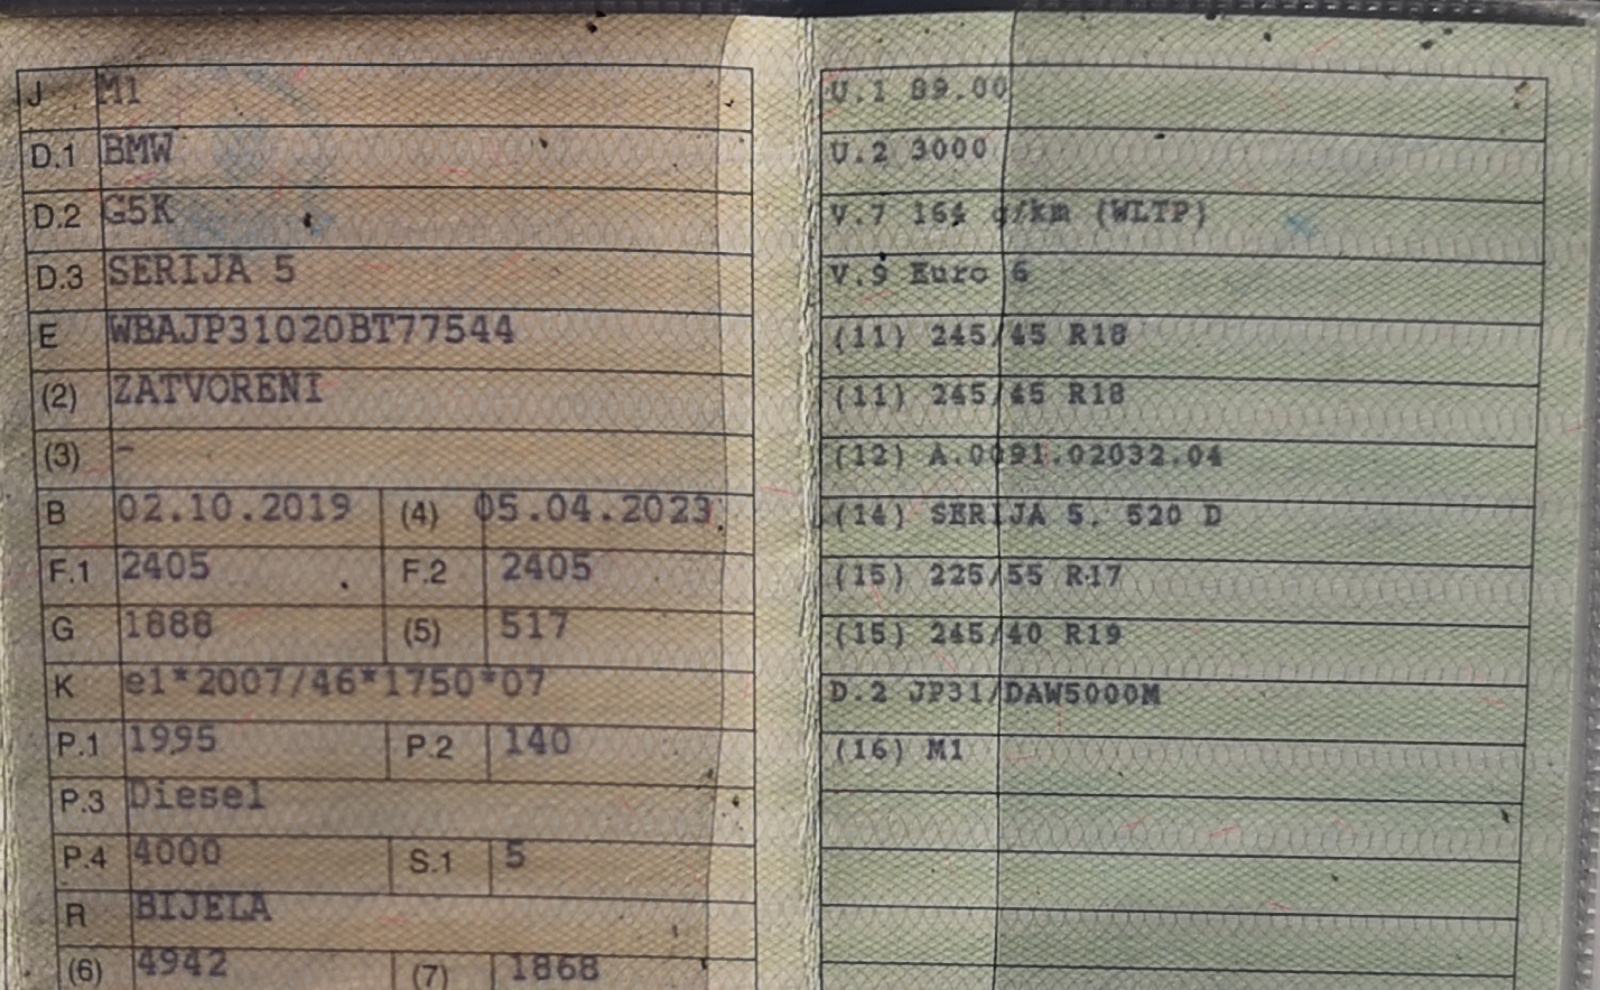 J M1
D.1 BMW
D.2 G5K
D.3 SERIJA 5
E WBAJP31020BT77544
(2) ZATVORENI
(3) -
B 02.10.2019 (4) 05.04.2023.
F.1 2405 F.2 2405
G 1888 (5) 517
K e1*2007/46*1750*07
P.1 1995 P.2 140
P.3 Diesel
P.4 4000 S.1 5
R BIJELA
(6) 4942 (7) 1868
U.1 89.00
U.2 3000
V.7 164 g/km (WLTP)
V.9 Euro 6
(11) 245/45 R18
(11) 245/45 R18
(12) A.0091.02032.04
(14) SERIJA 5, 520 D
(15) 225/55 R17
(15) 245/40 R19
D.2 JP31/DAW5000M
(16) M1